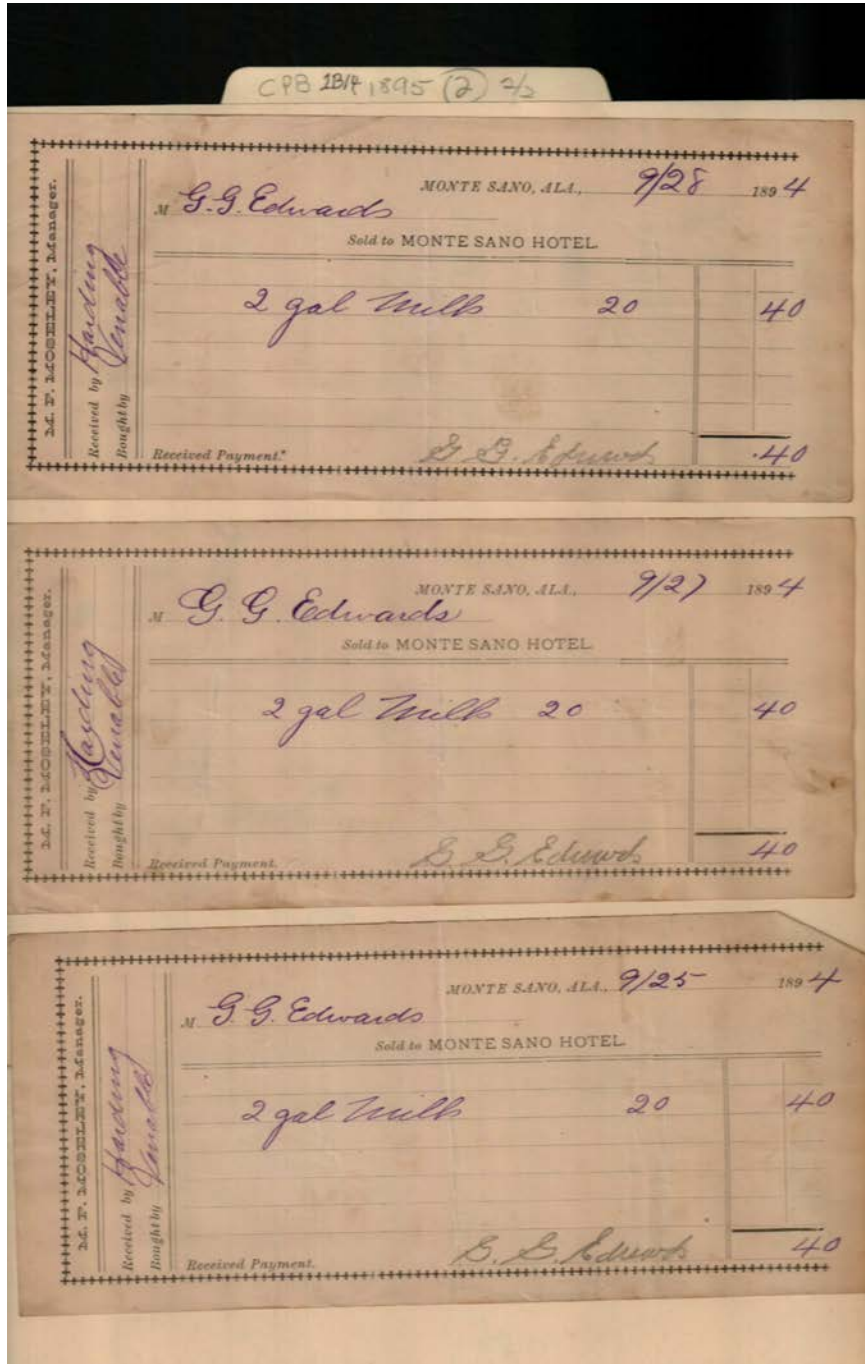 CPB 2B14 1895 (2) 2/2
M. F. MOSELEY, Manager.
Received by Harding
Bought by Venable
MONTE SANO, ALA., 9/28 1894
M G. G. Edwards
Sold to MONTE SANO HOTEL.
2 gal Milk 20 40
.40
Received Payment. G. G. Edwards
M. F. MOSELEY, Manager.
Received by Harding
Bought by Venable
MONTE SANO, ALA., 9/27 1894
M G. G. Edwards
Sold to MONTE SANO HOTEL.
2 gal Milk 20 40
40
Received Payment. G. G. Edwards
M. F. MOSELEY, Manager.
Received by Harding
Bought by Venable
MONTE SANO, ALA., 9/25 1894
M G. G. Edwards
Sold to MONTE SANO HOTEL.
2 gal Milk 20 40
40
Received Payment. G. G. Edwards